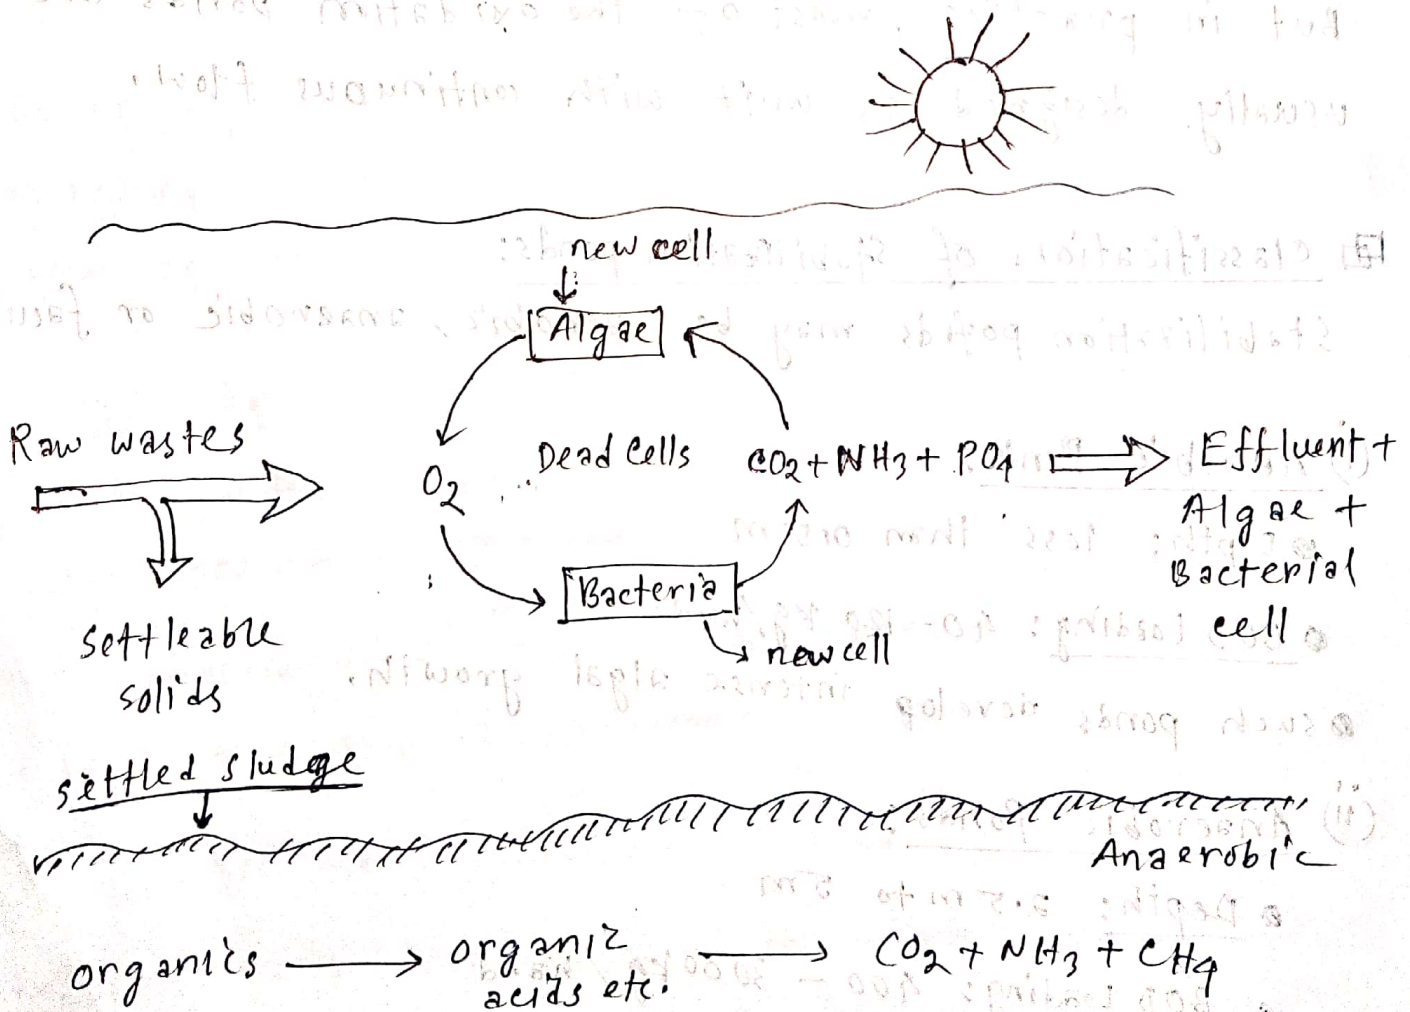 new cell
Algae
Raw wastes
O2
Dead cells
CO2 + NH3 + PO4
Effluent +
Algae +
Bacterial
cell
Bacteria
new cell
settleable
solids
settled sludge
Anaerobic
organics
organic
acids etc.
CO2 + NH3 + CH4